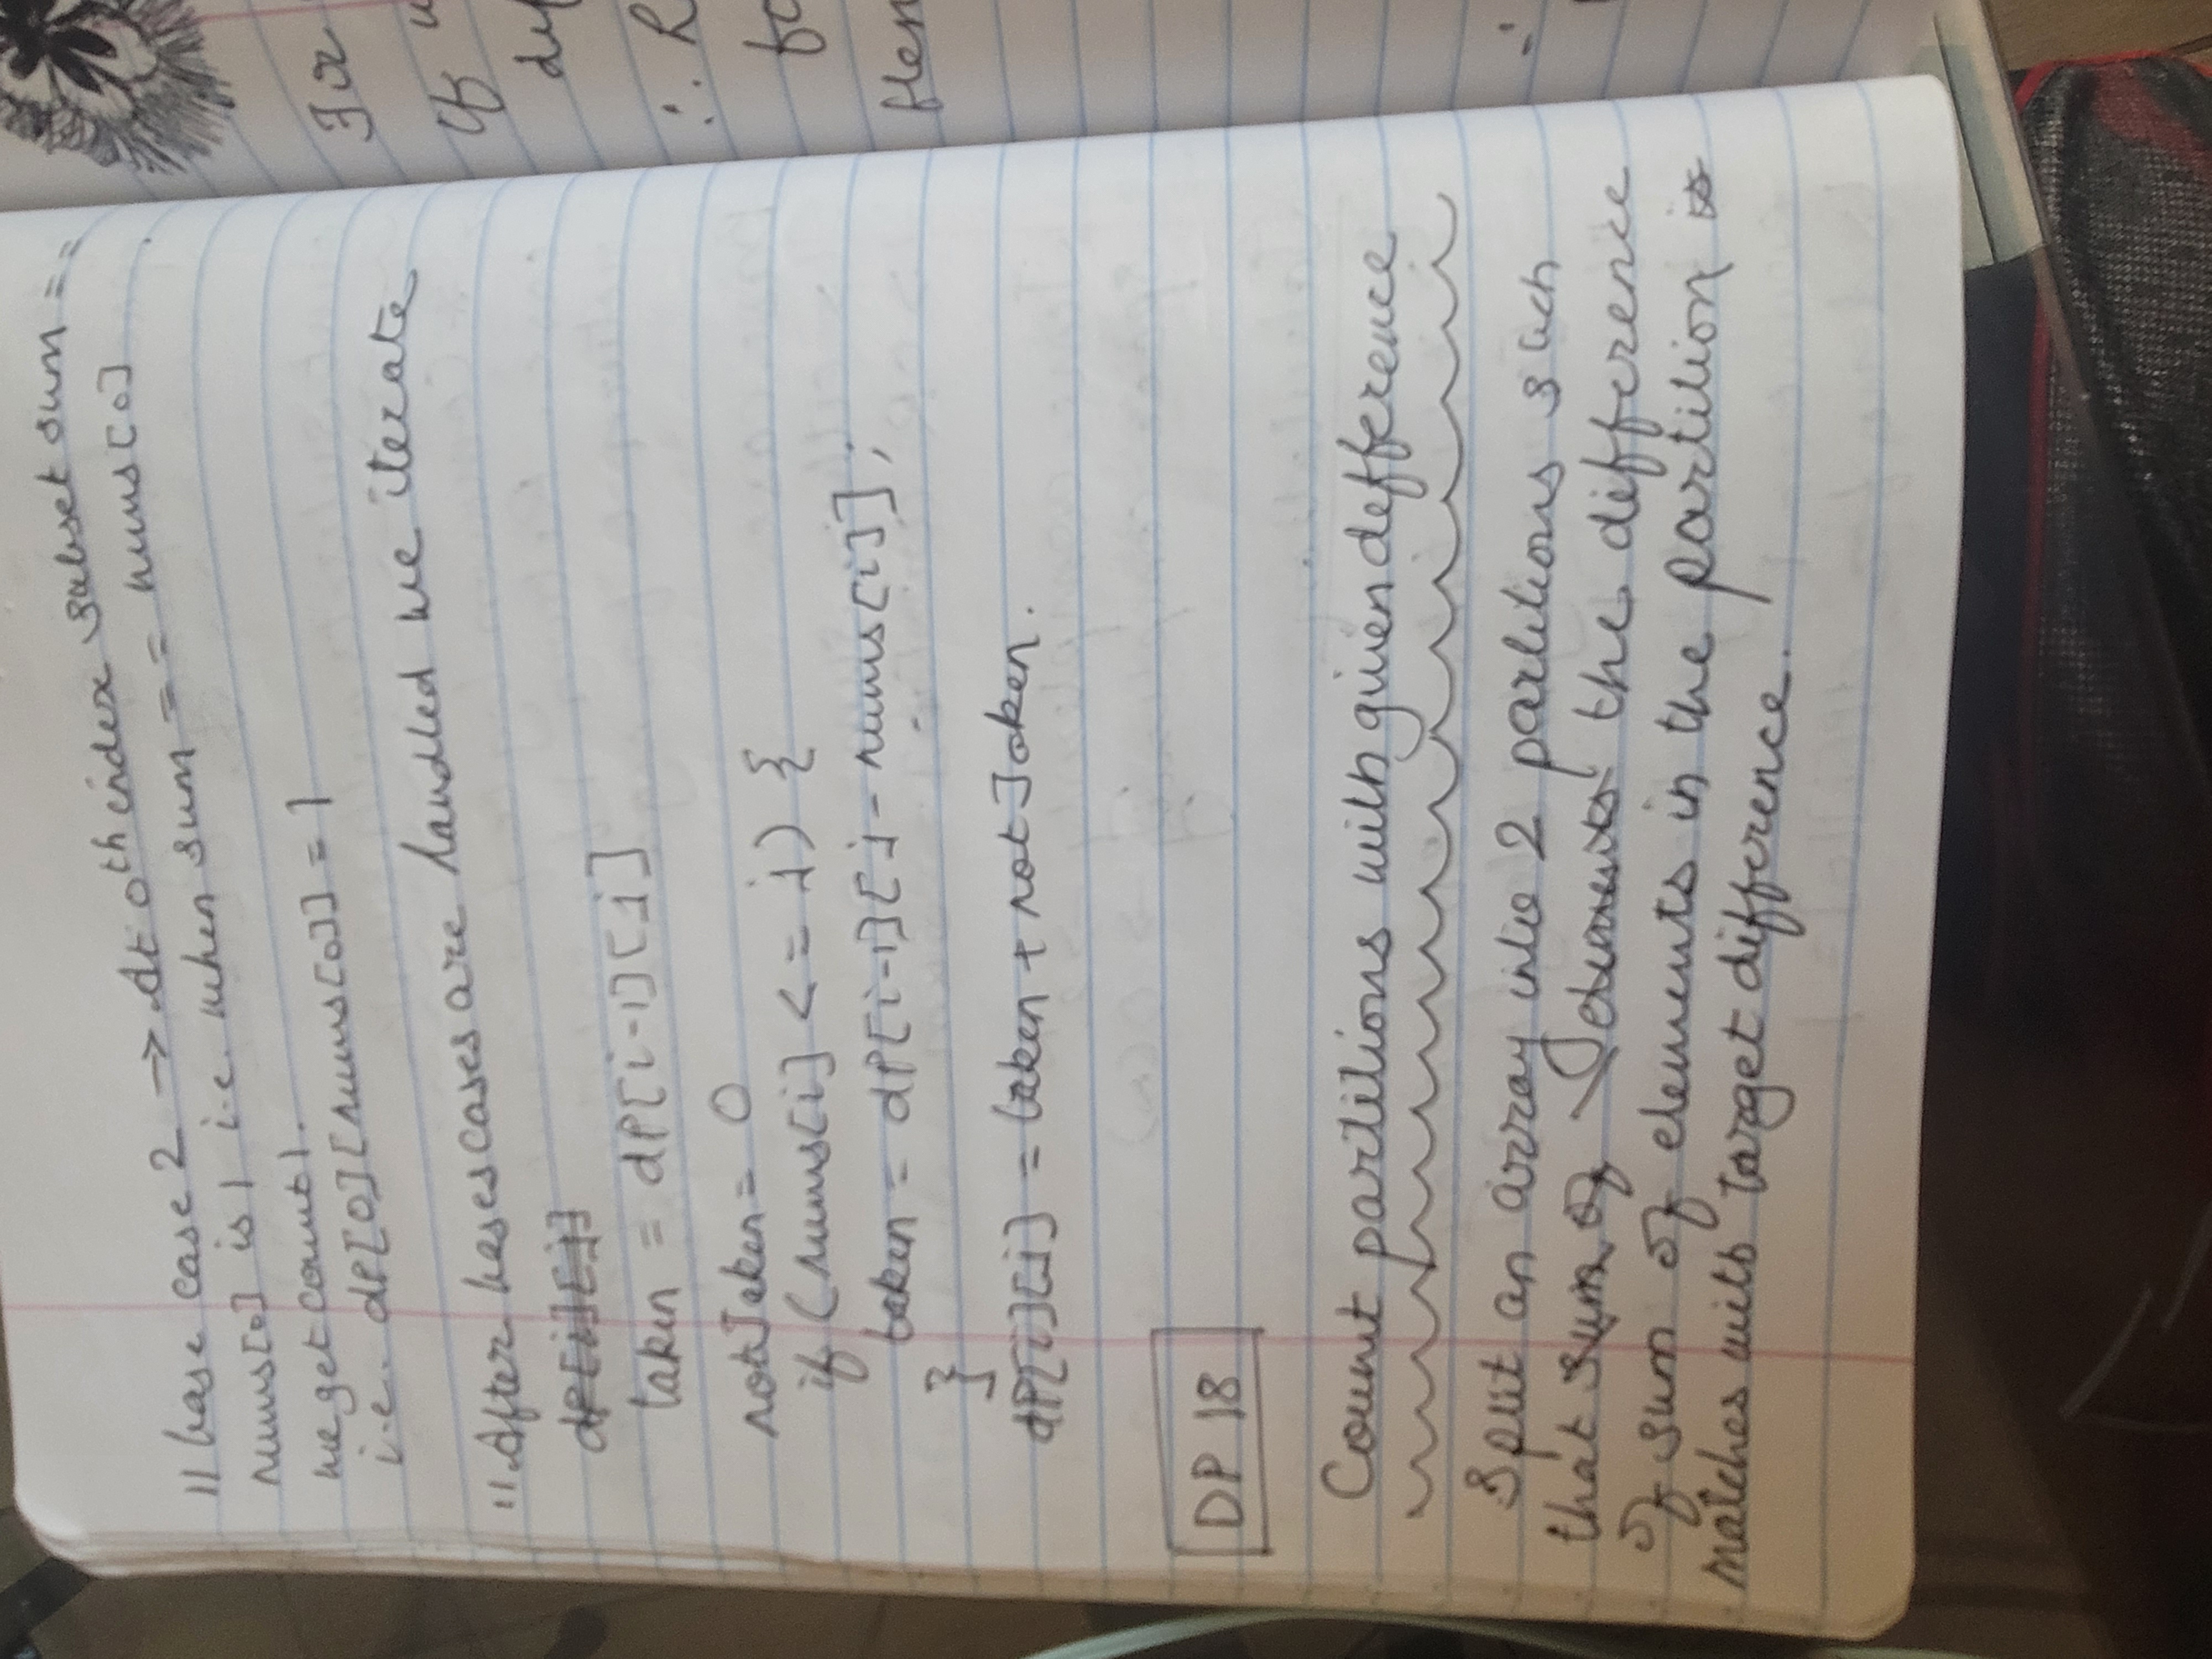 // base case 2 → At 0th index subset sum ==
nums[0] is 1 i.e. when sum == nums[0]
we get count 1.
i.e. dp[0][nums[0]] = 1
// After bases cases are handled we iterate
dp[i][j]
taken = dp[i-1][j]
notTaken = 0
if (nums[i] <= j) {
taken = dp[i-1][j - nums[i]];
}
dp[i][j] = taken + notTaken.
DP 18
Count partitions with given defference
Split an array into 2 partitions such
that sum of elements the difference
of sum of elements in the partition is
matches with target difference.
If